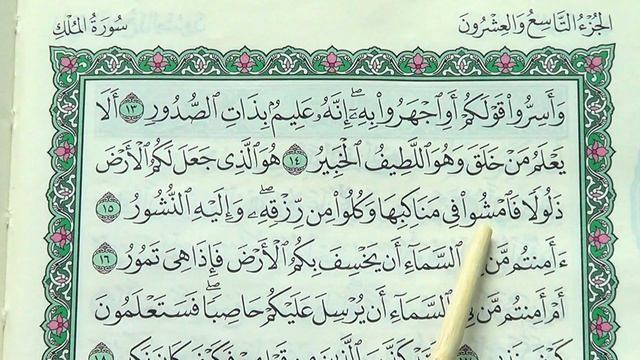 الجُزْءُ التَّاسِعُ وَالعِشْرُونَ
سُورَةُ المُلْكِ
وَأَسِرُّوا۟ قَوْلَكُمْ أَوِ ٱجْهَرُوا۟ بِهِۦٓ ۖ إِنَّهُۥ عَلِيمٌۢ بِذَاتِ ٱلصُّدُورِ ١٣ أَلَا
يَعْلَمُ مَنْ خَلَقَ وَهُوَ ٱللَّطِيفُ ٱلْخَبِيرُ ١٤ هُوَ ٱلَّذِى جَعَلَ لَكُمُ ٱلْأَرْضَ
ذَلُولًا فَٱمْشُوا۟ فِى مَنَاكِبِهَا وَكُلُوا۟ مِن رِّزْقِهِۦ ۖ وَإِلَيْهِ ٱلنُّشُورُ ١٥
ءَأَمِنتُم مَّن ٱلسَّمَآءِ أَن يَخْسِفَ بِكُمُ ٱلْأَرْضَ فَإِذَا هِىَ تَمُورُ ١٦
أَمْ أَمِنتُم مَّن فِى ٱلسَّمَآءِ أَن يُرْسِلَ عَلَيْكُمْ حَاصِبًا ۖ فَسَتَعْلَمُونَ